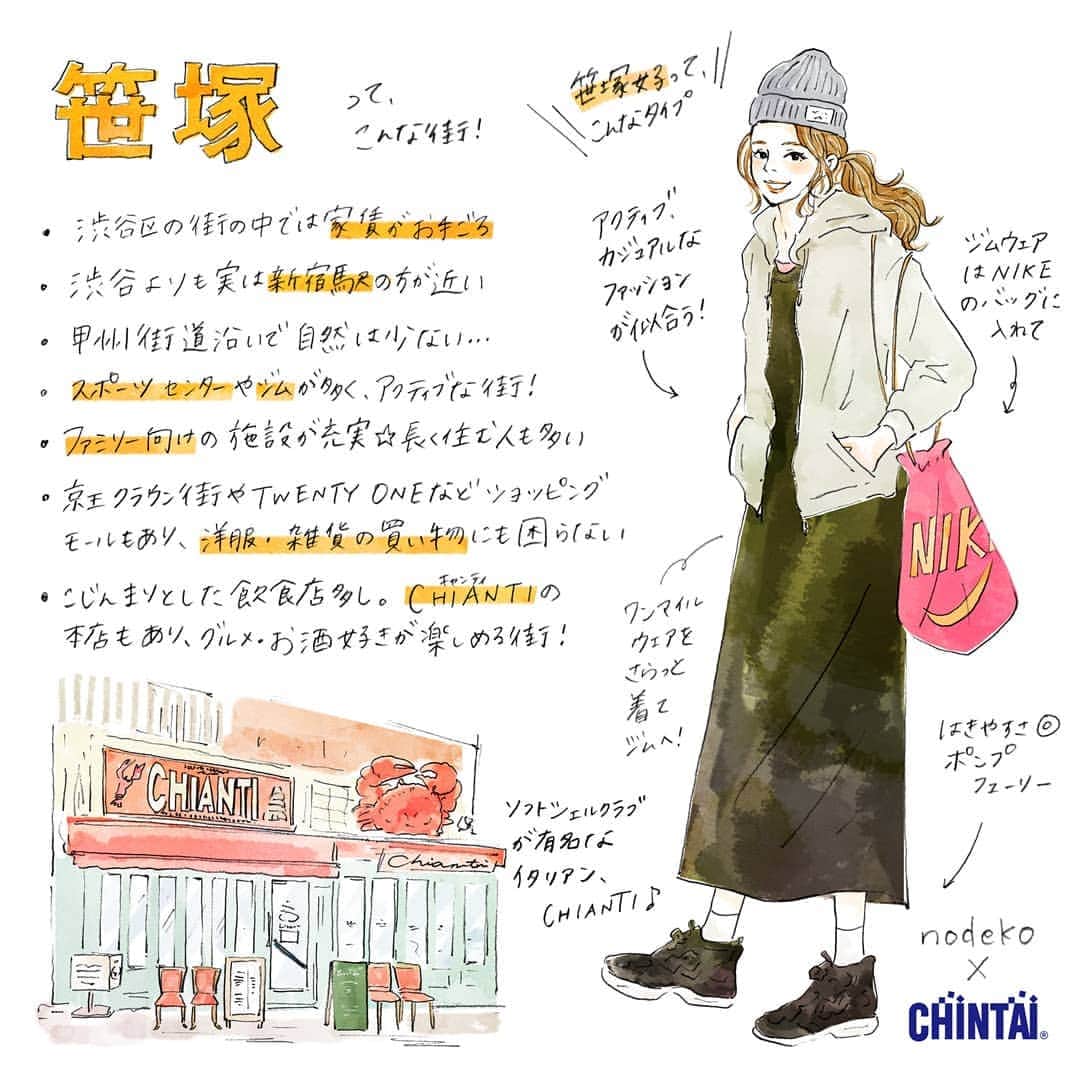 笹塚
って、
こんな街!
・渋谷区の街の中では家賃がお手ごろ
・渋谷よりも実は新宿駅の方が近い
・甲州街道沿いで自然は少ない…
・スポーツセンターやジムが多く、アクティブな街!
・ファミリー向けの施設が充実☆長く住む人も多い
・京王クラウン街やTWENTY ONEなどショッピング
モールもあり、洋服・雑貨の買い物にも困らない
・こじんまりとした飲食店多し。CHIANTIの
キャンティ
本店もあり、グルメ・お酒好きが楽しめる街!
笹塚女子って、
こんなタイプ
アクティブ、
カジュアルな
ファッション
が似合う!
ジムウェア
はNIKE
のバッグに
入れて
NIK
ワンマイル
ウェアを
さらっと
着て
ジムへ!
はきやすさ◎
ポンプ
フューリー
CHIANTI
Chianti
ソフトシェルクラブ
が有名な
イタリアン、
CHIANTI♪
nodeko
×
CHINTAI®